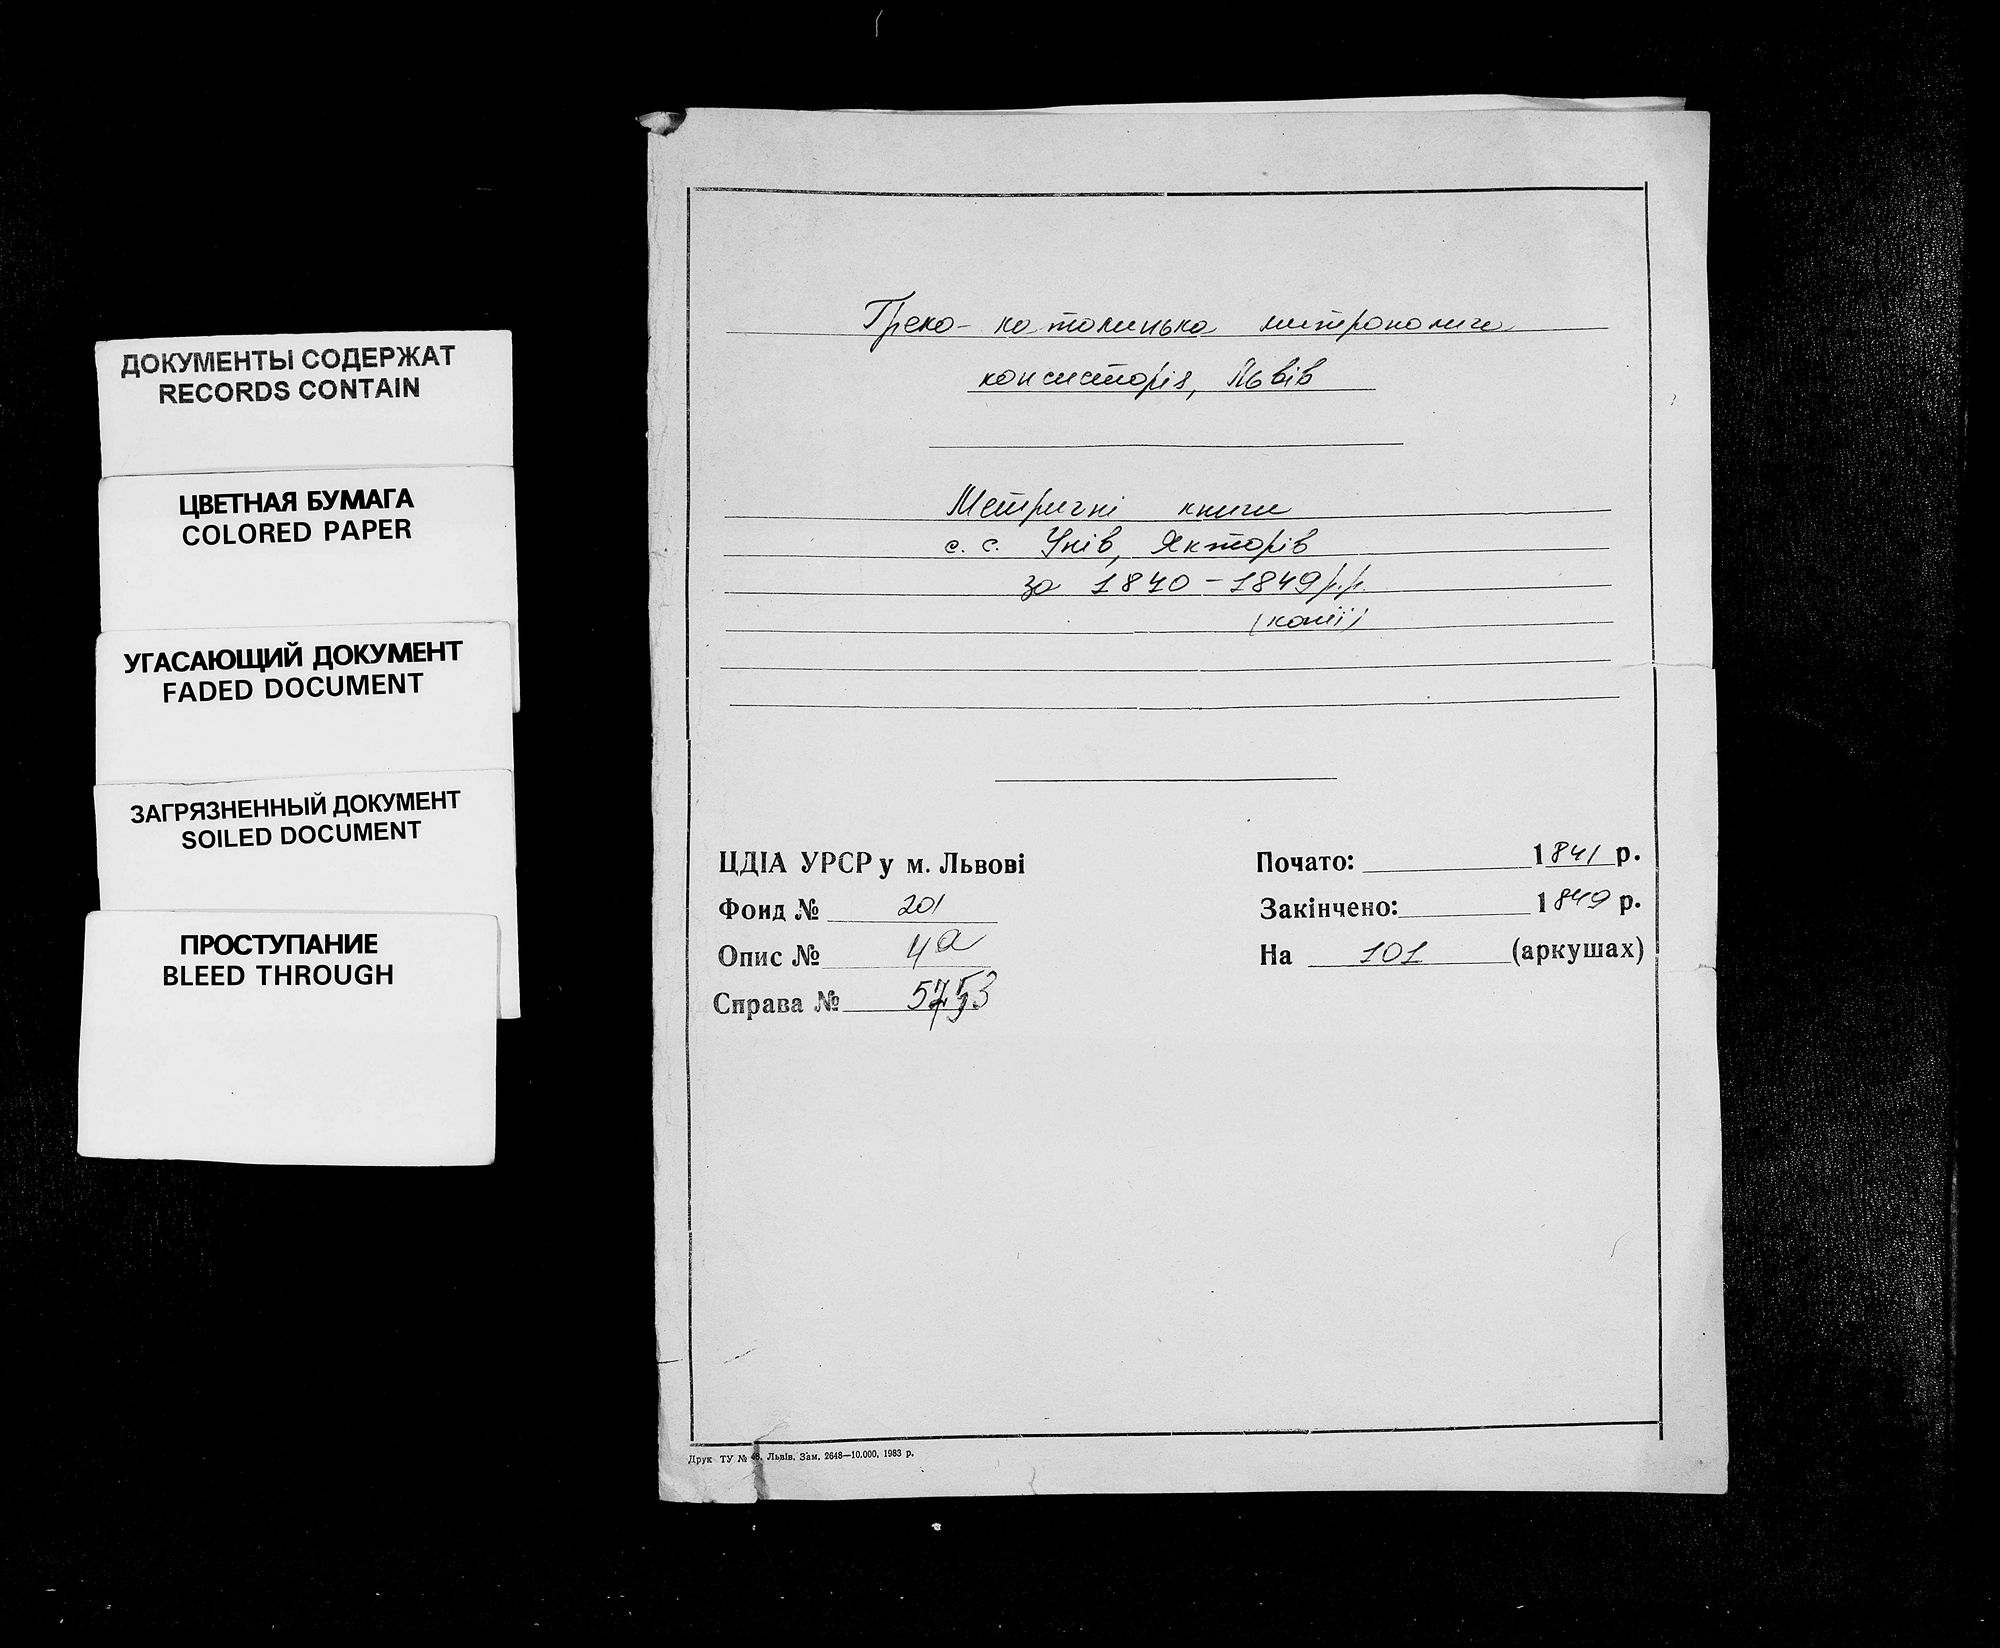 ДОКУМЕНТЫ СОДЕРЖАТ
RECORDS CONTAIN
ЦВЕТНАЯ БУМАГА
COLORED PAPER
УГАСАЮЩИЙ ДОКУМЕНТ
FADED DOCUMENT
ЗАГРЯЗНЕННЫЙ ДОКУМЕНТ
SOILED DOCUMENT
ПРОСТУПАНИЕ
BLEED THROUGH
Греко-католицька митрополича
консисторія, Львів
Метричні книги
с. с. Унів, Якторів
за 1840-1849 р.р.
(копії)
ЦДІА УРСР у м. Львові
Фонд № 201
Опис № 4а
Справа №
Почато: 1841 р.
Закінчено: 1849 р.
На 101 (аркушах)
Друк ТУ № 48, Львів. Зам. 2648—10.000. 1983 р.